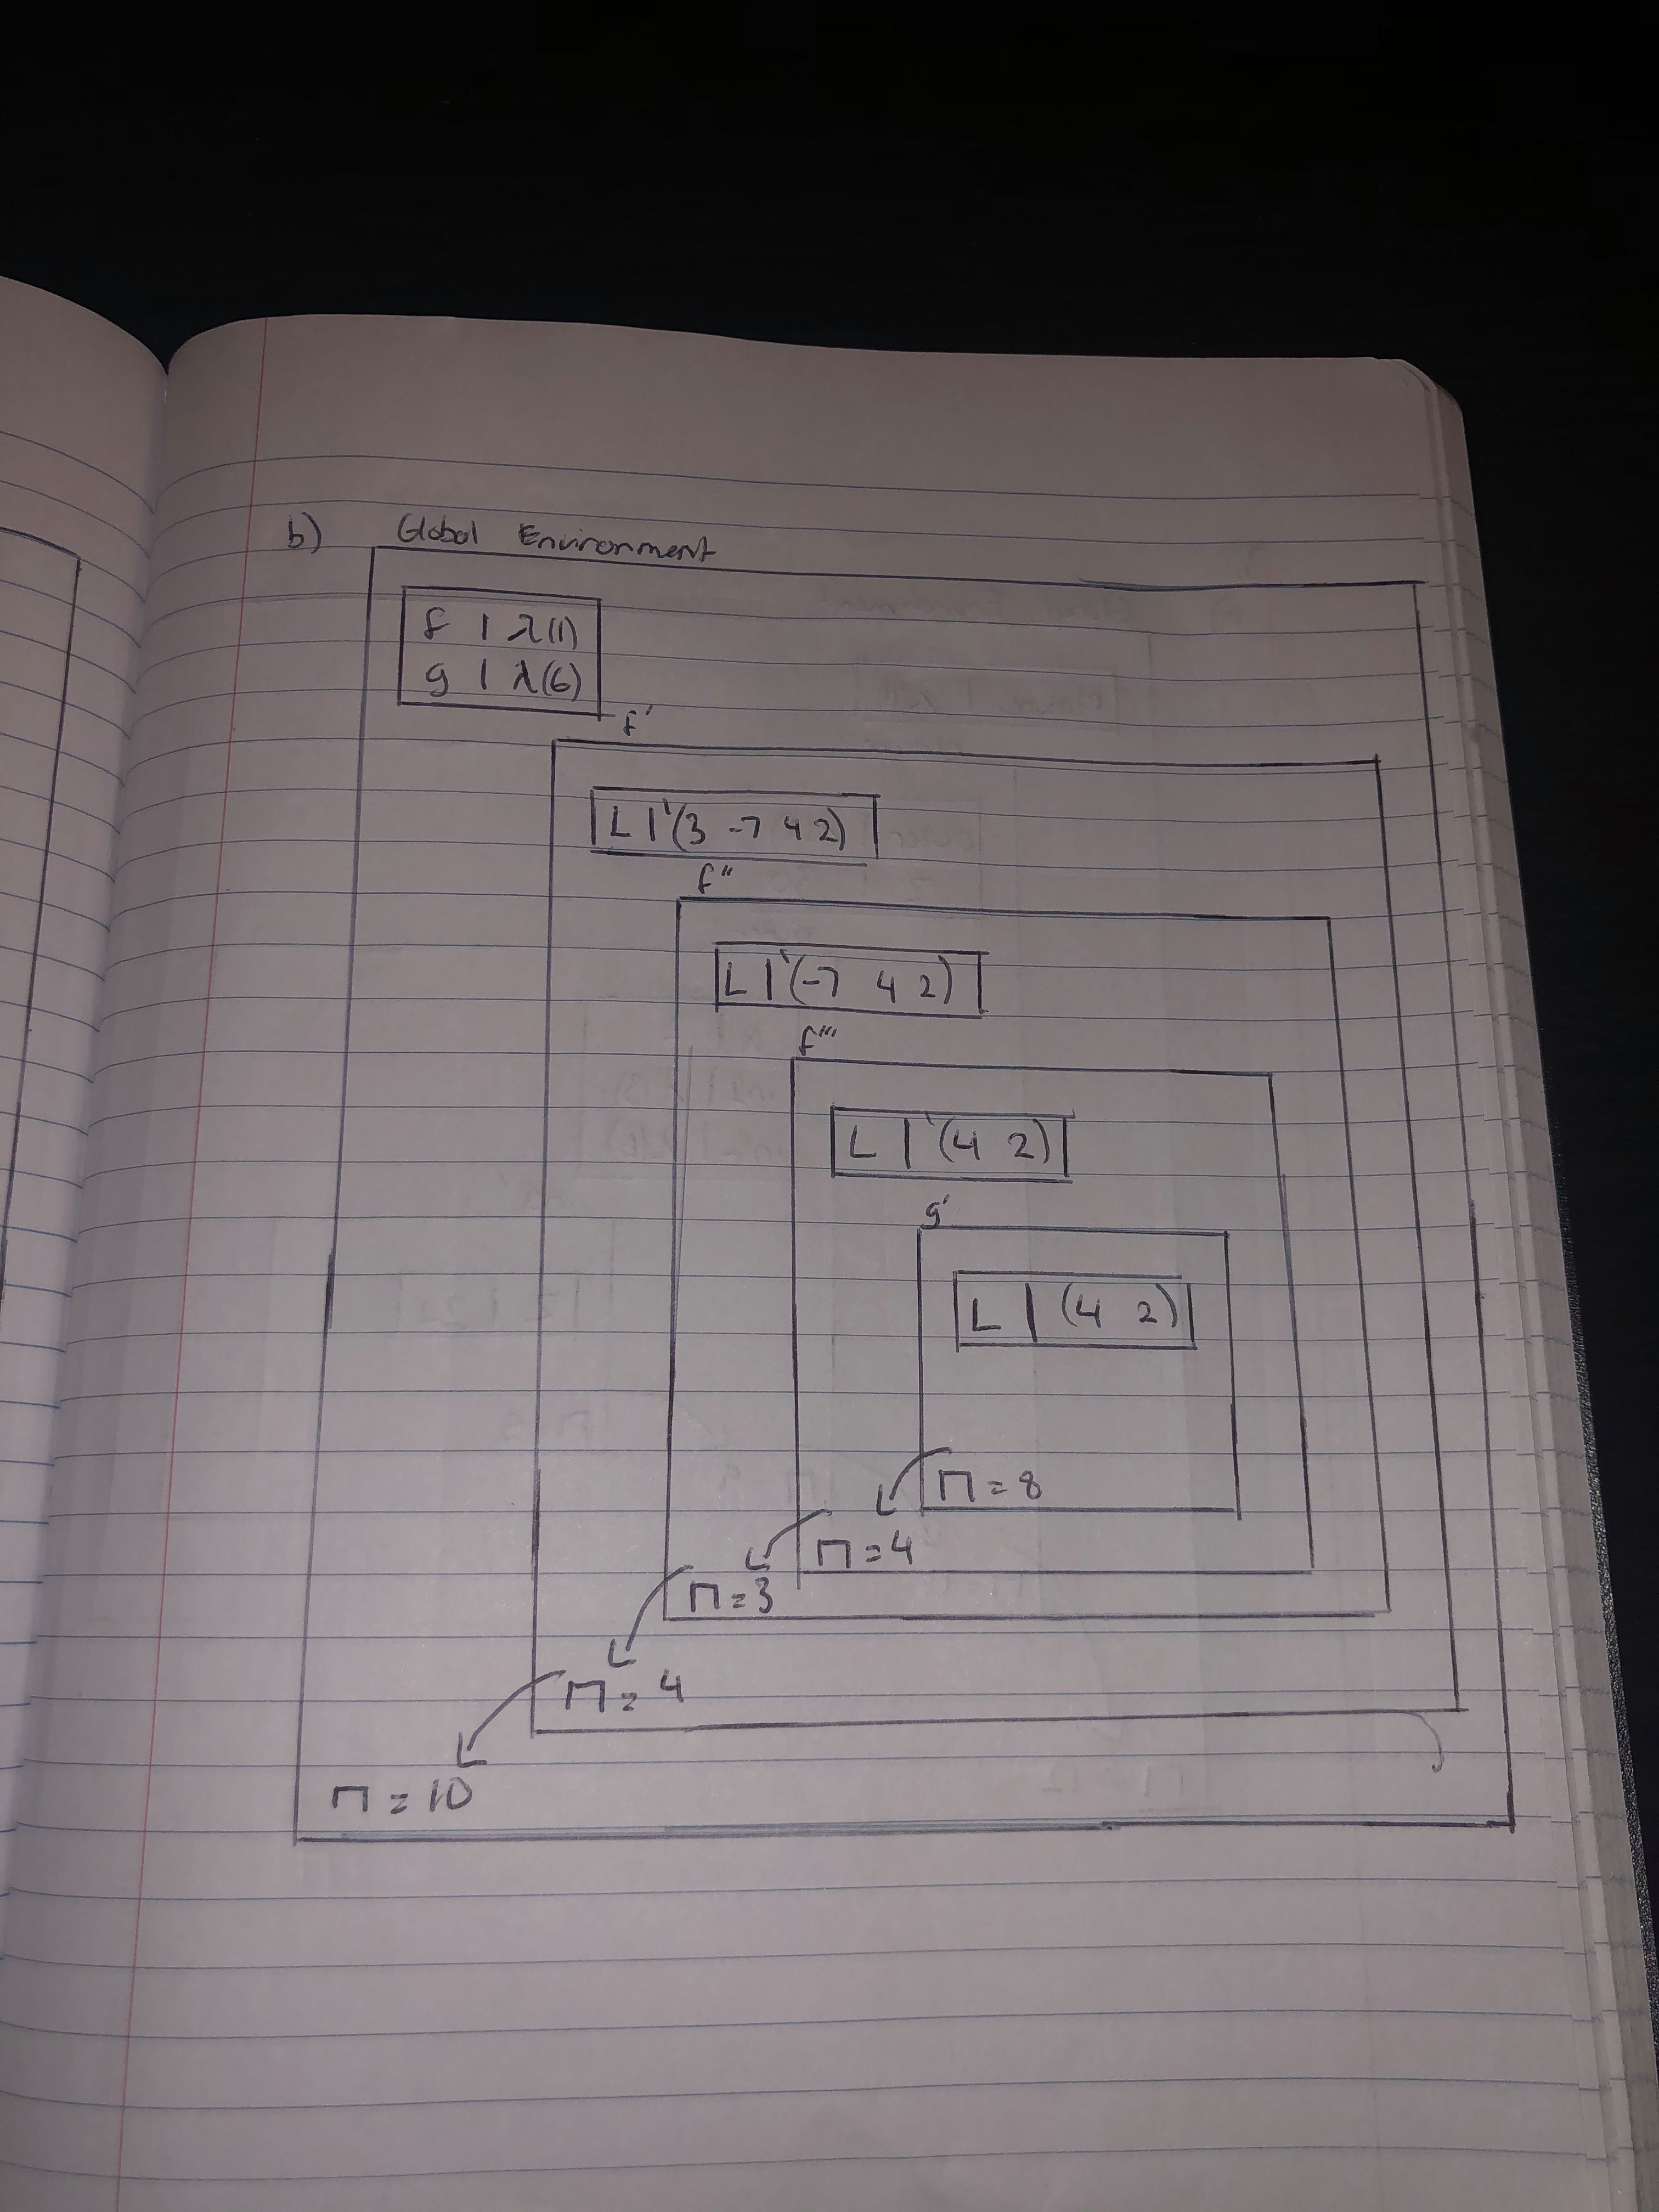 b) Global Environment
f | λ(1)
g | λ(6)
f'
L | '(3 -7 4 2)
f''
L | '(-7 4 2)
f'''
L | '(4 2)
g'
L | (4 2)
Π = 8
Π = 4
Π = 3
Π = 4
Π = 10